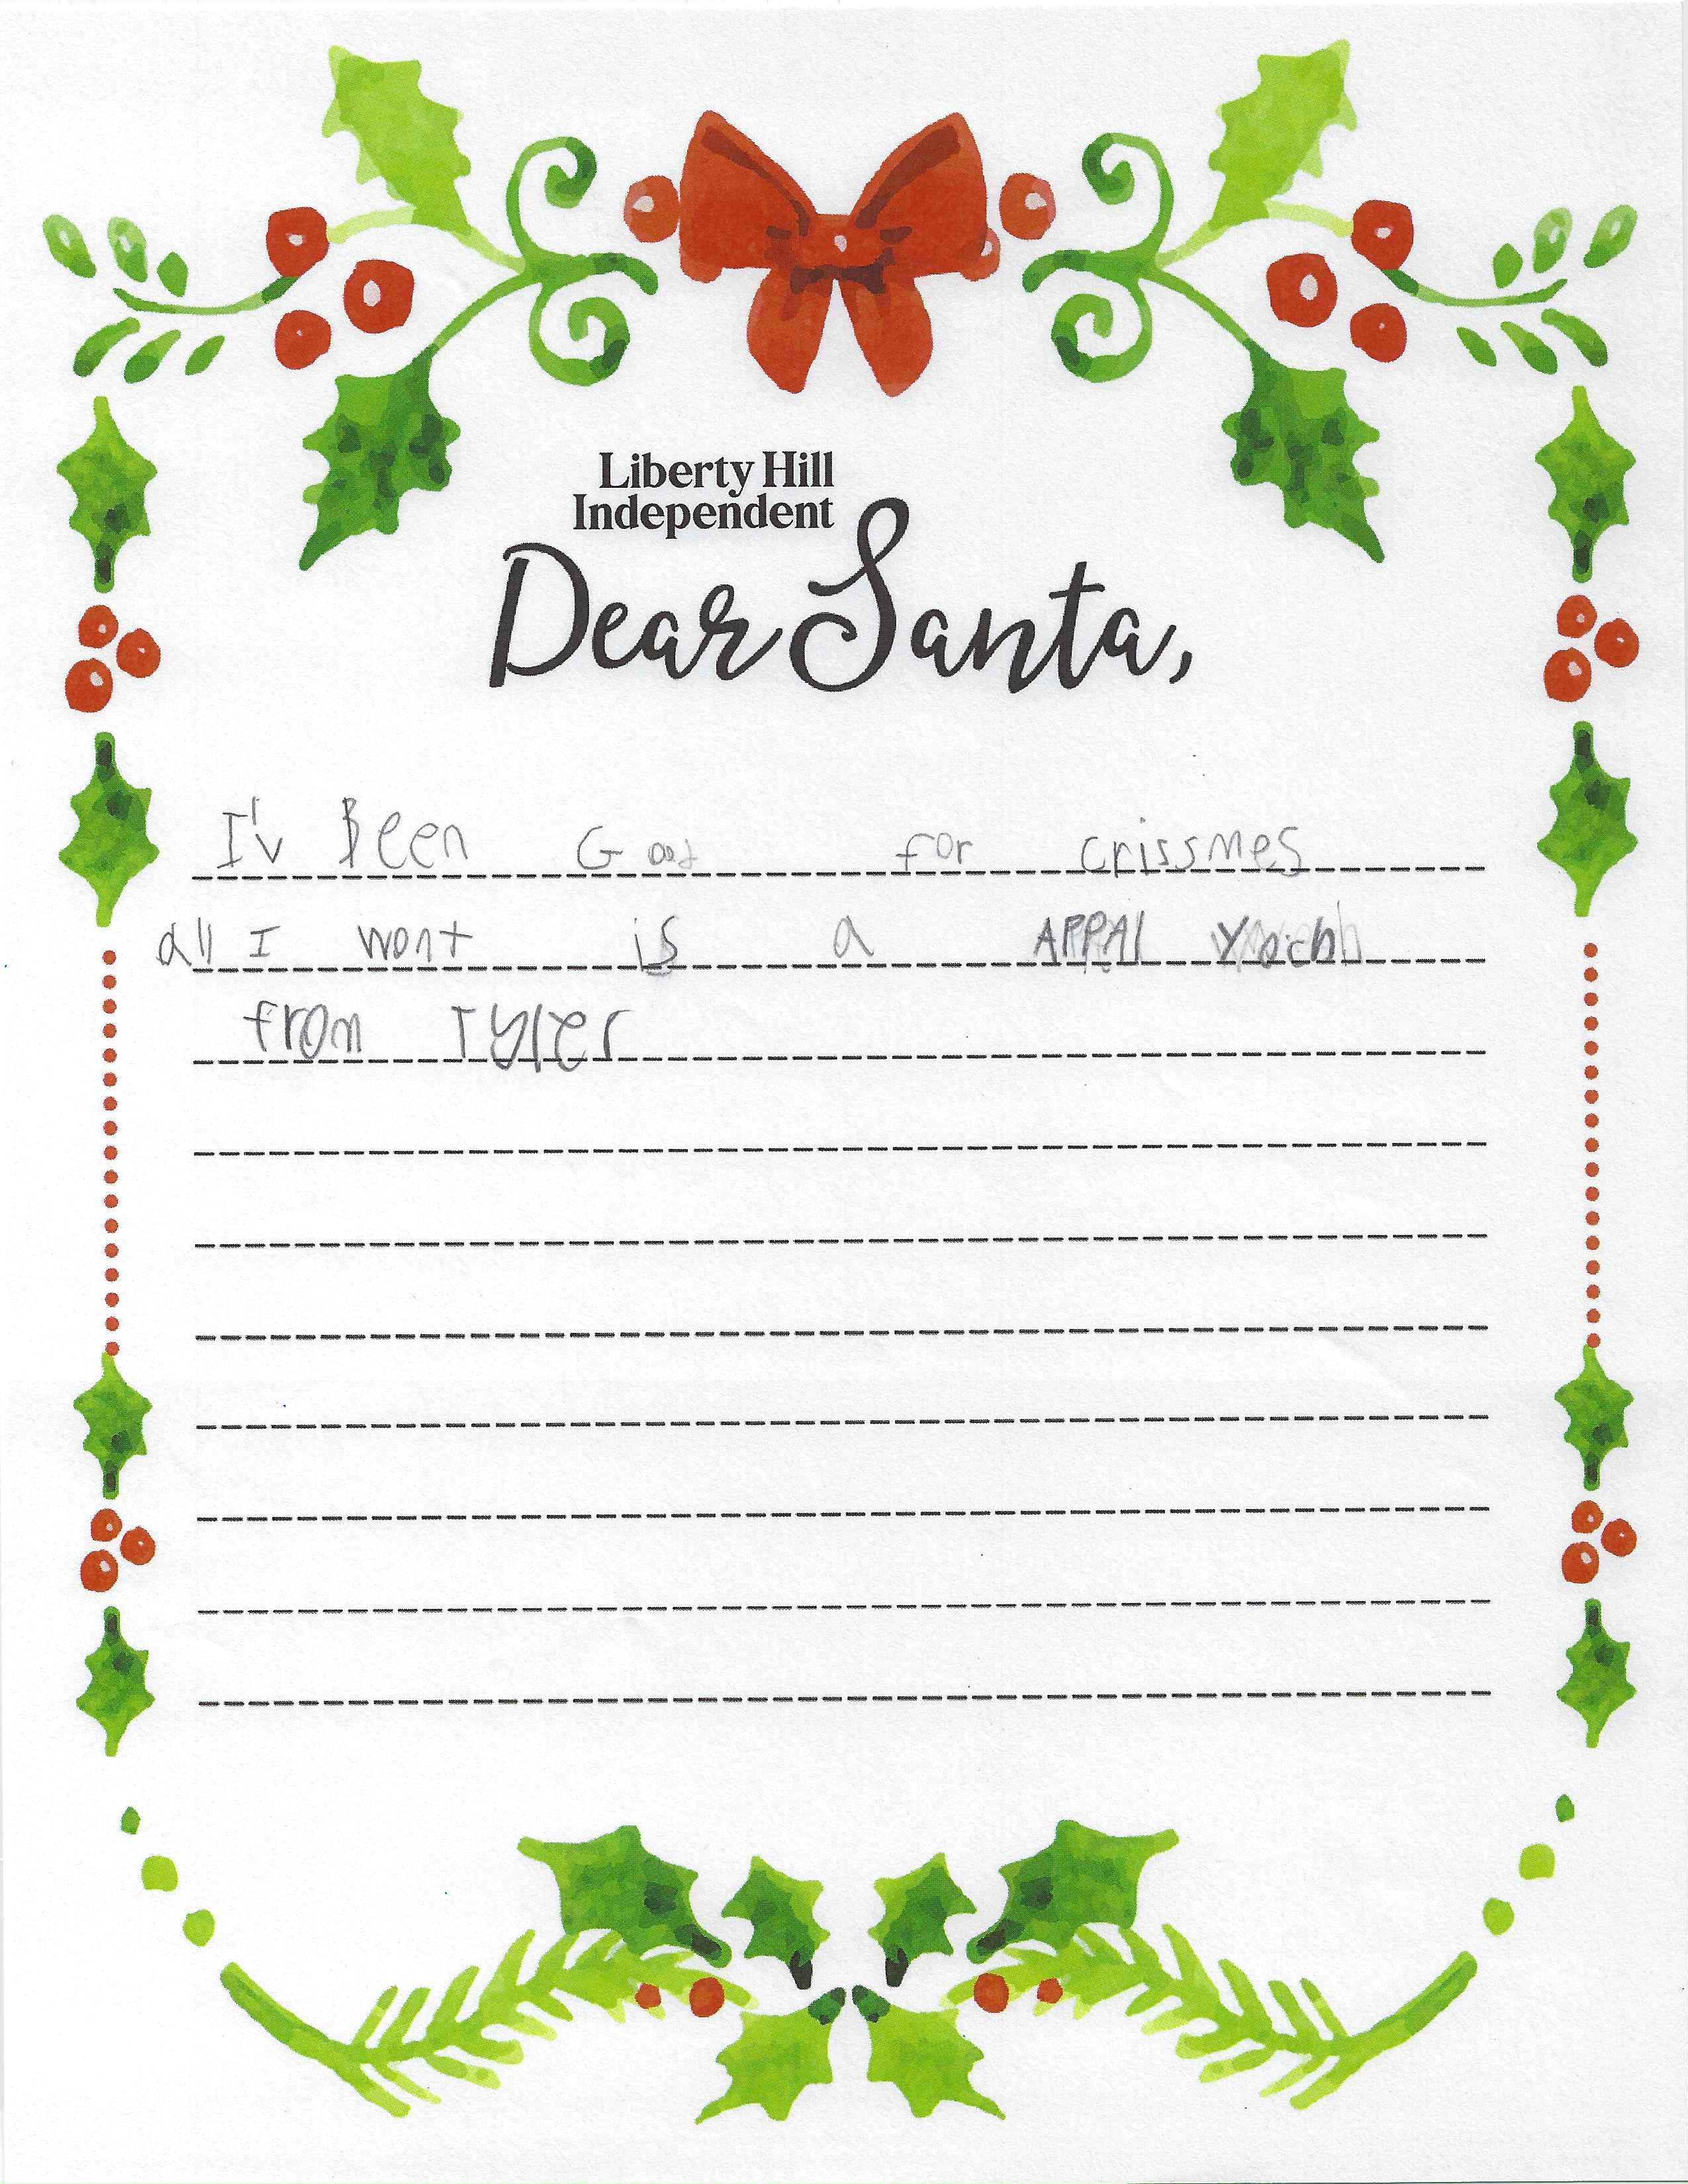 Liberty Hill
Independent
Dear Santa,
I'v Been Good for crissmes
all I wont is a APPAl Yach
from Tyler